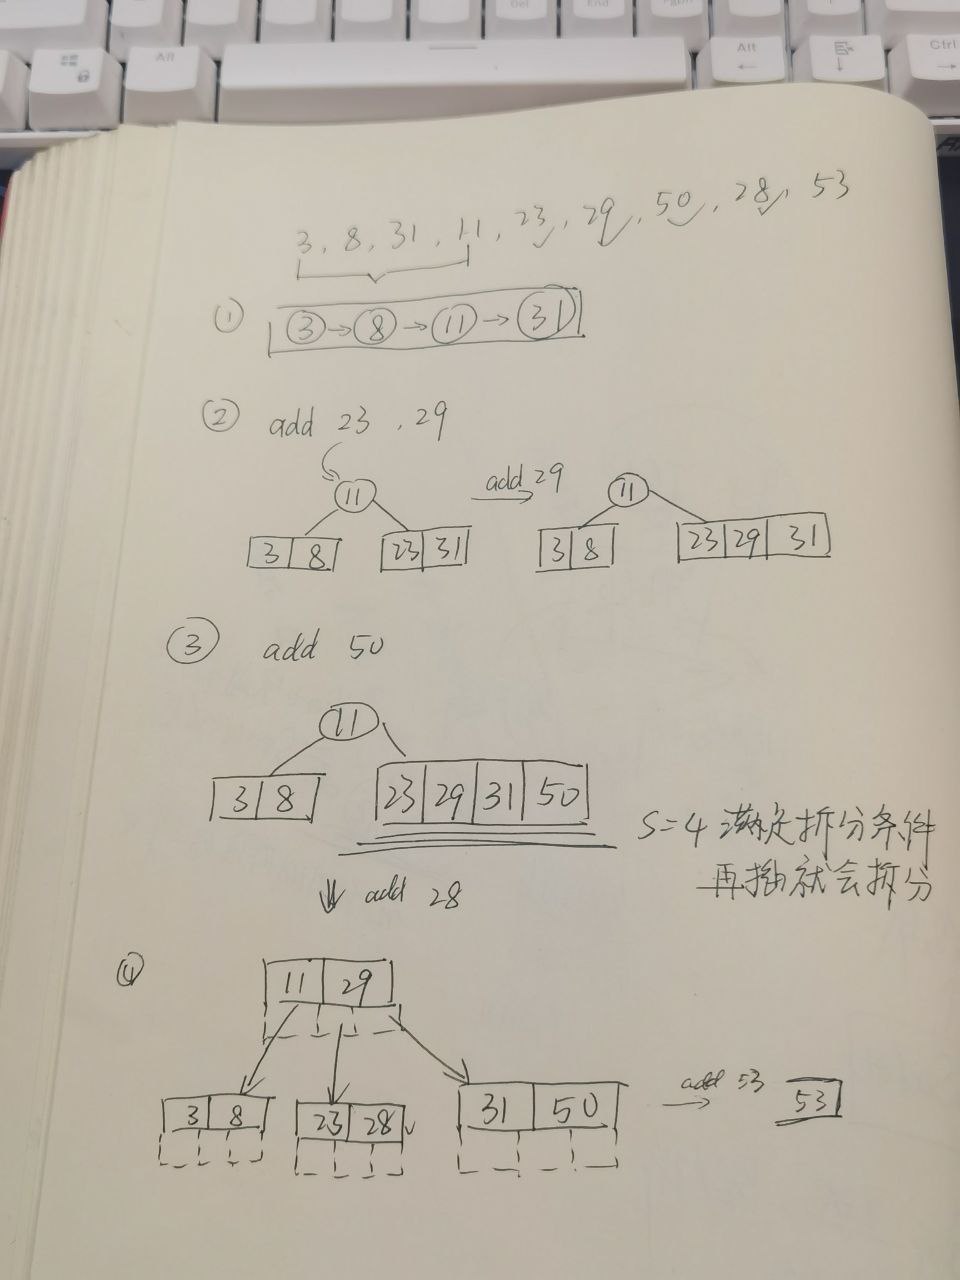 Del End PgDn
Alt Alt Ctrl
3, 8, 31, 11, 23, 29, 50, 28, 53
① 3 → 8 → 11 → 31
② add 23, 29
11 add 29 11
3 8 23 31 3 8 23 29 31
③ add 50
11
3 8 23 29 31 50
S=4 满足拆分条件
再插就会拆分
add 28
④ 11 29
3 8 23 28 31 50 add 53 53